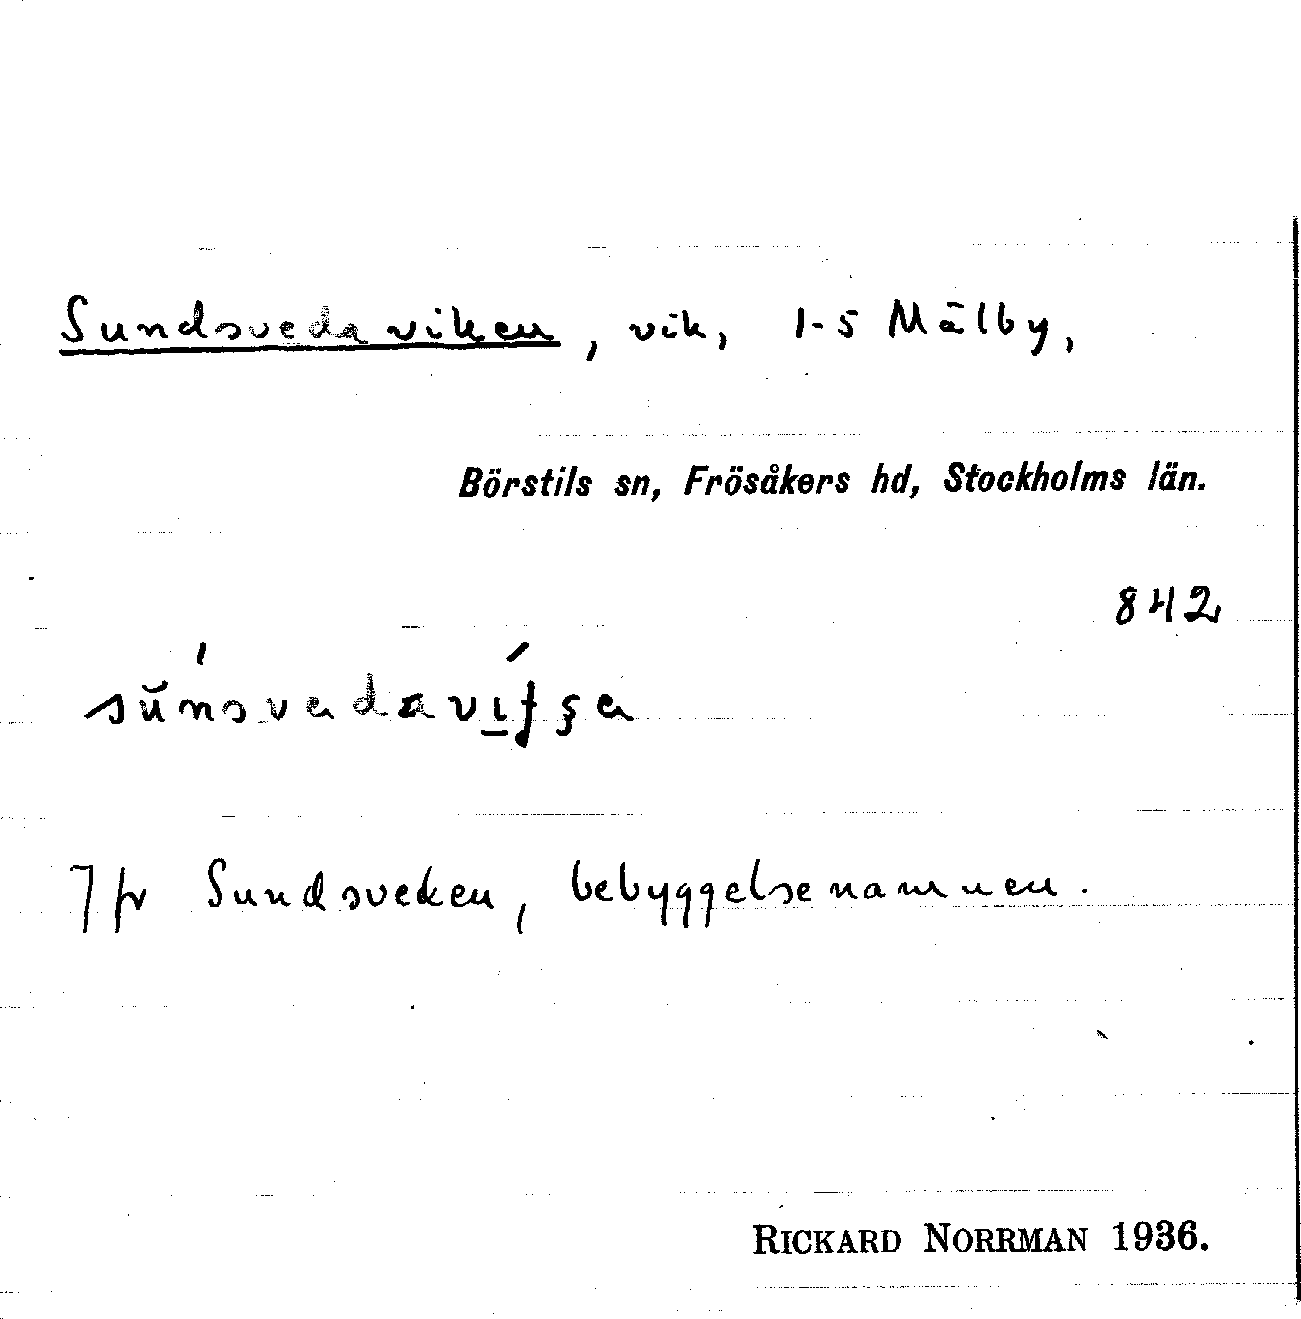 Sundsvedaviken, vik, 1-5 Mälby,
Börstils sn, Frösåkers hd, Stockholms län.
842
Jfr Sundsveden, bebyggelsenamnen.
RICKARD NORRMAN 1936.